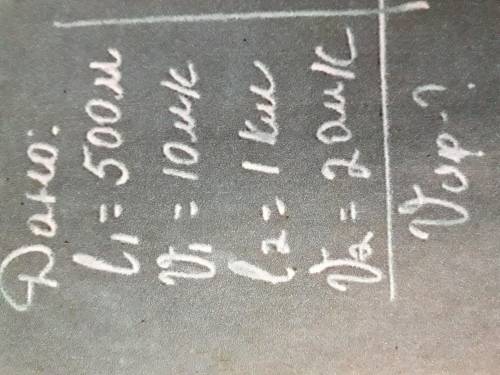 Дано:
l₁ = 500м
V₁ = 10м/с
l₂ = 1 км
V₂ = 20м/с
Vср - ?